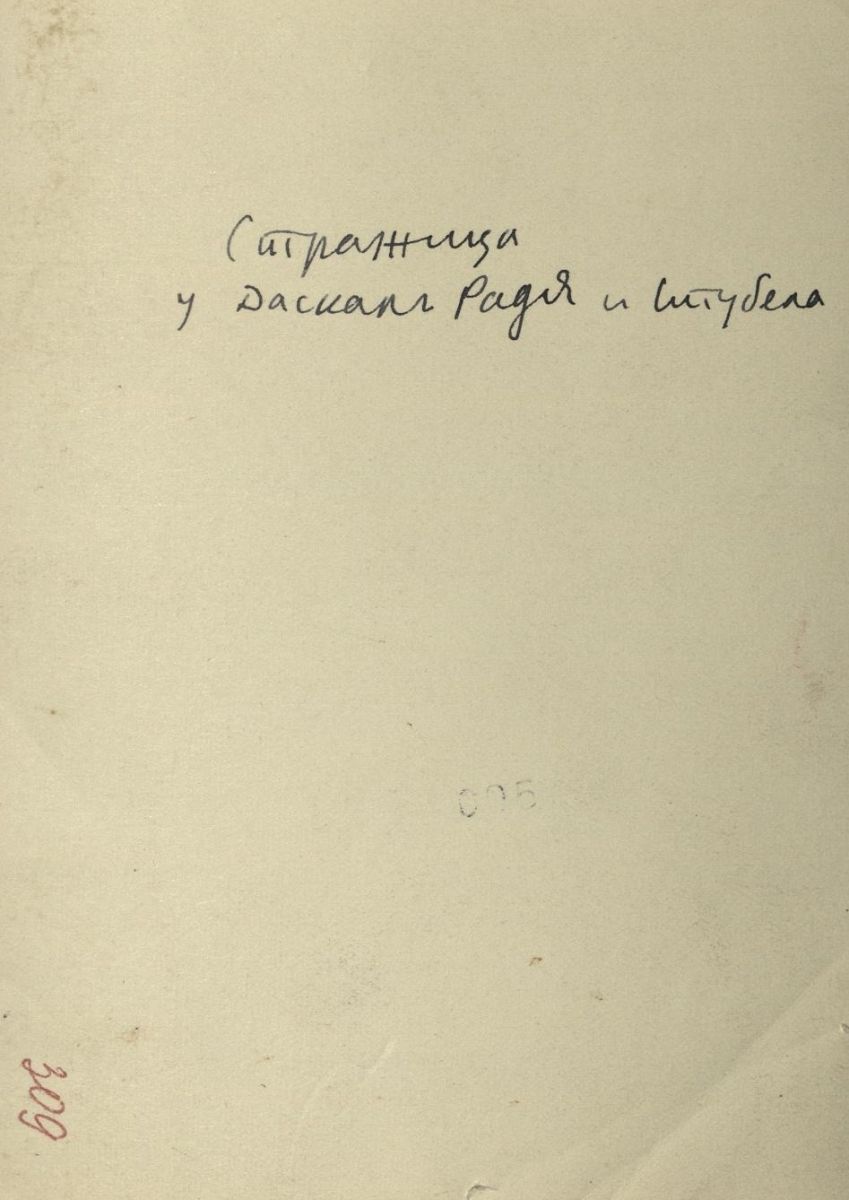 Стражица
у Даскал Радя и Щтубела
095
309